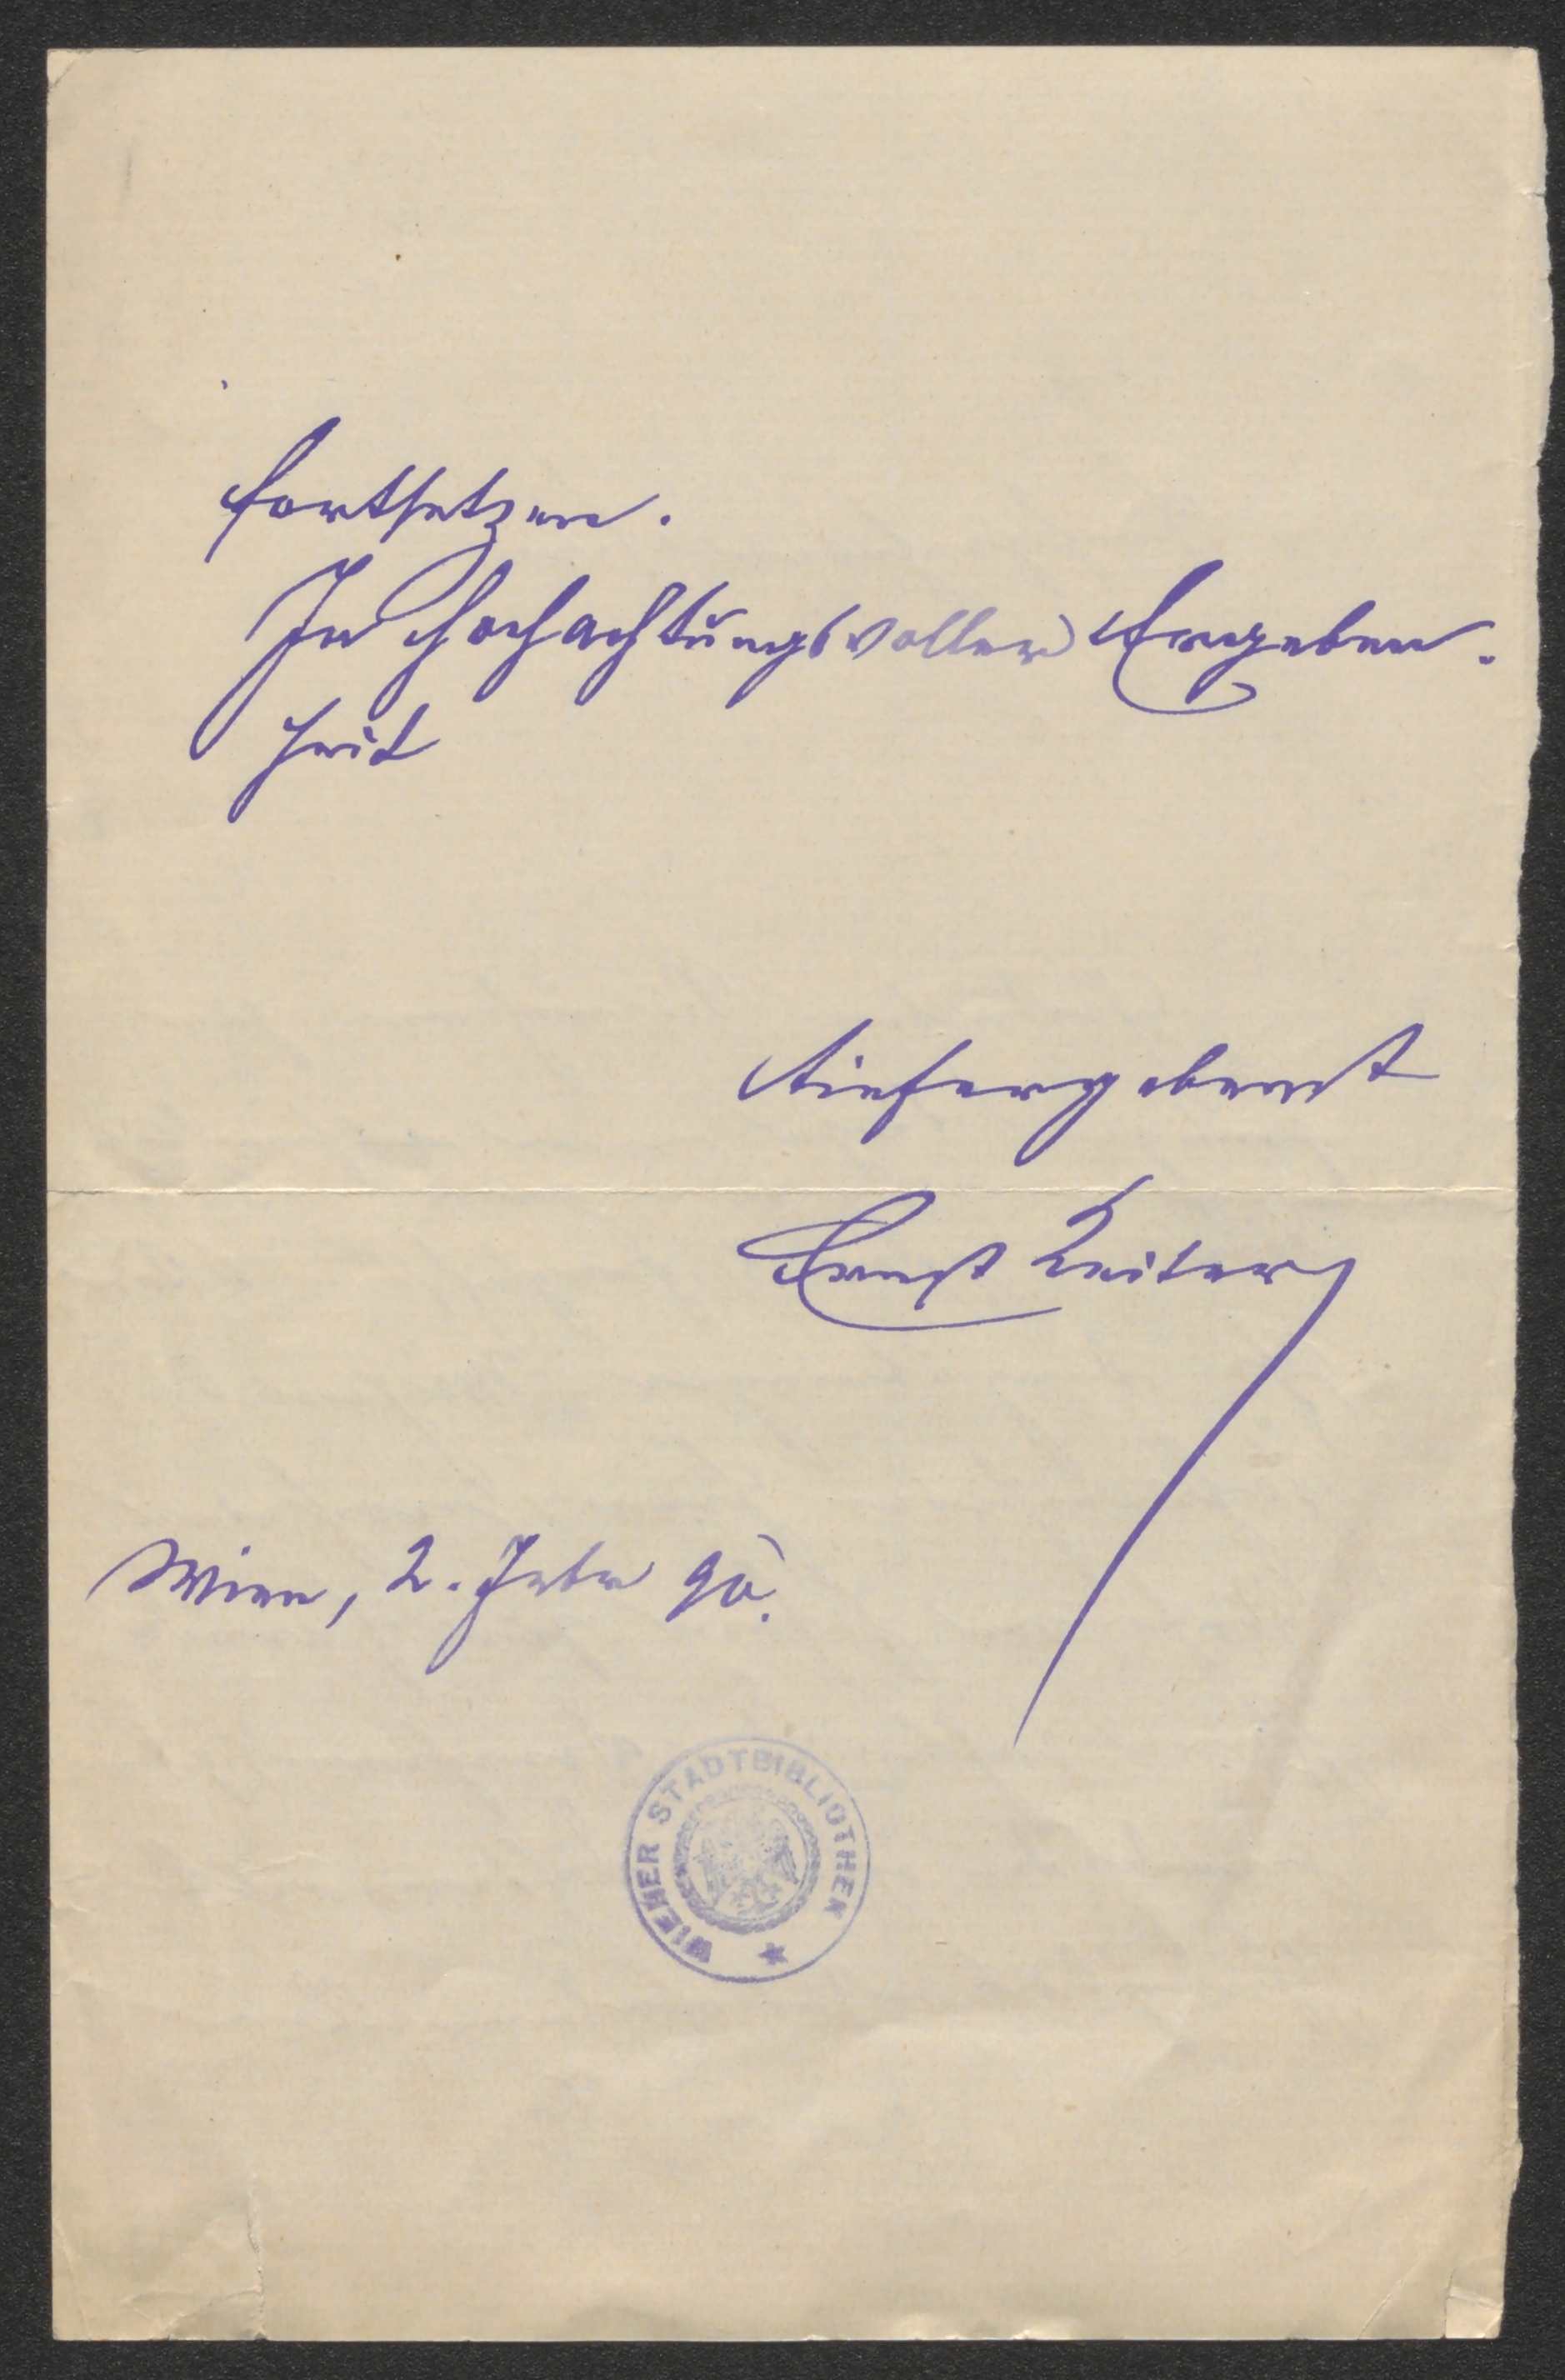 fortsetzen.
In hochachtungsvoller Ergeben-
heit
tiefergebenst
Ernst Reiter
Wien, 2. Febr 90.
WIENER STADTBIBLIOTHEK